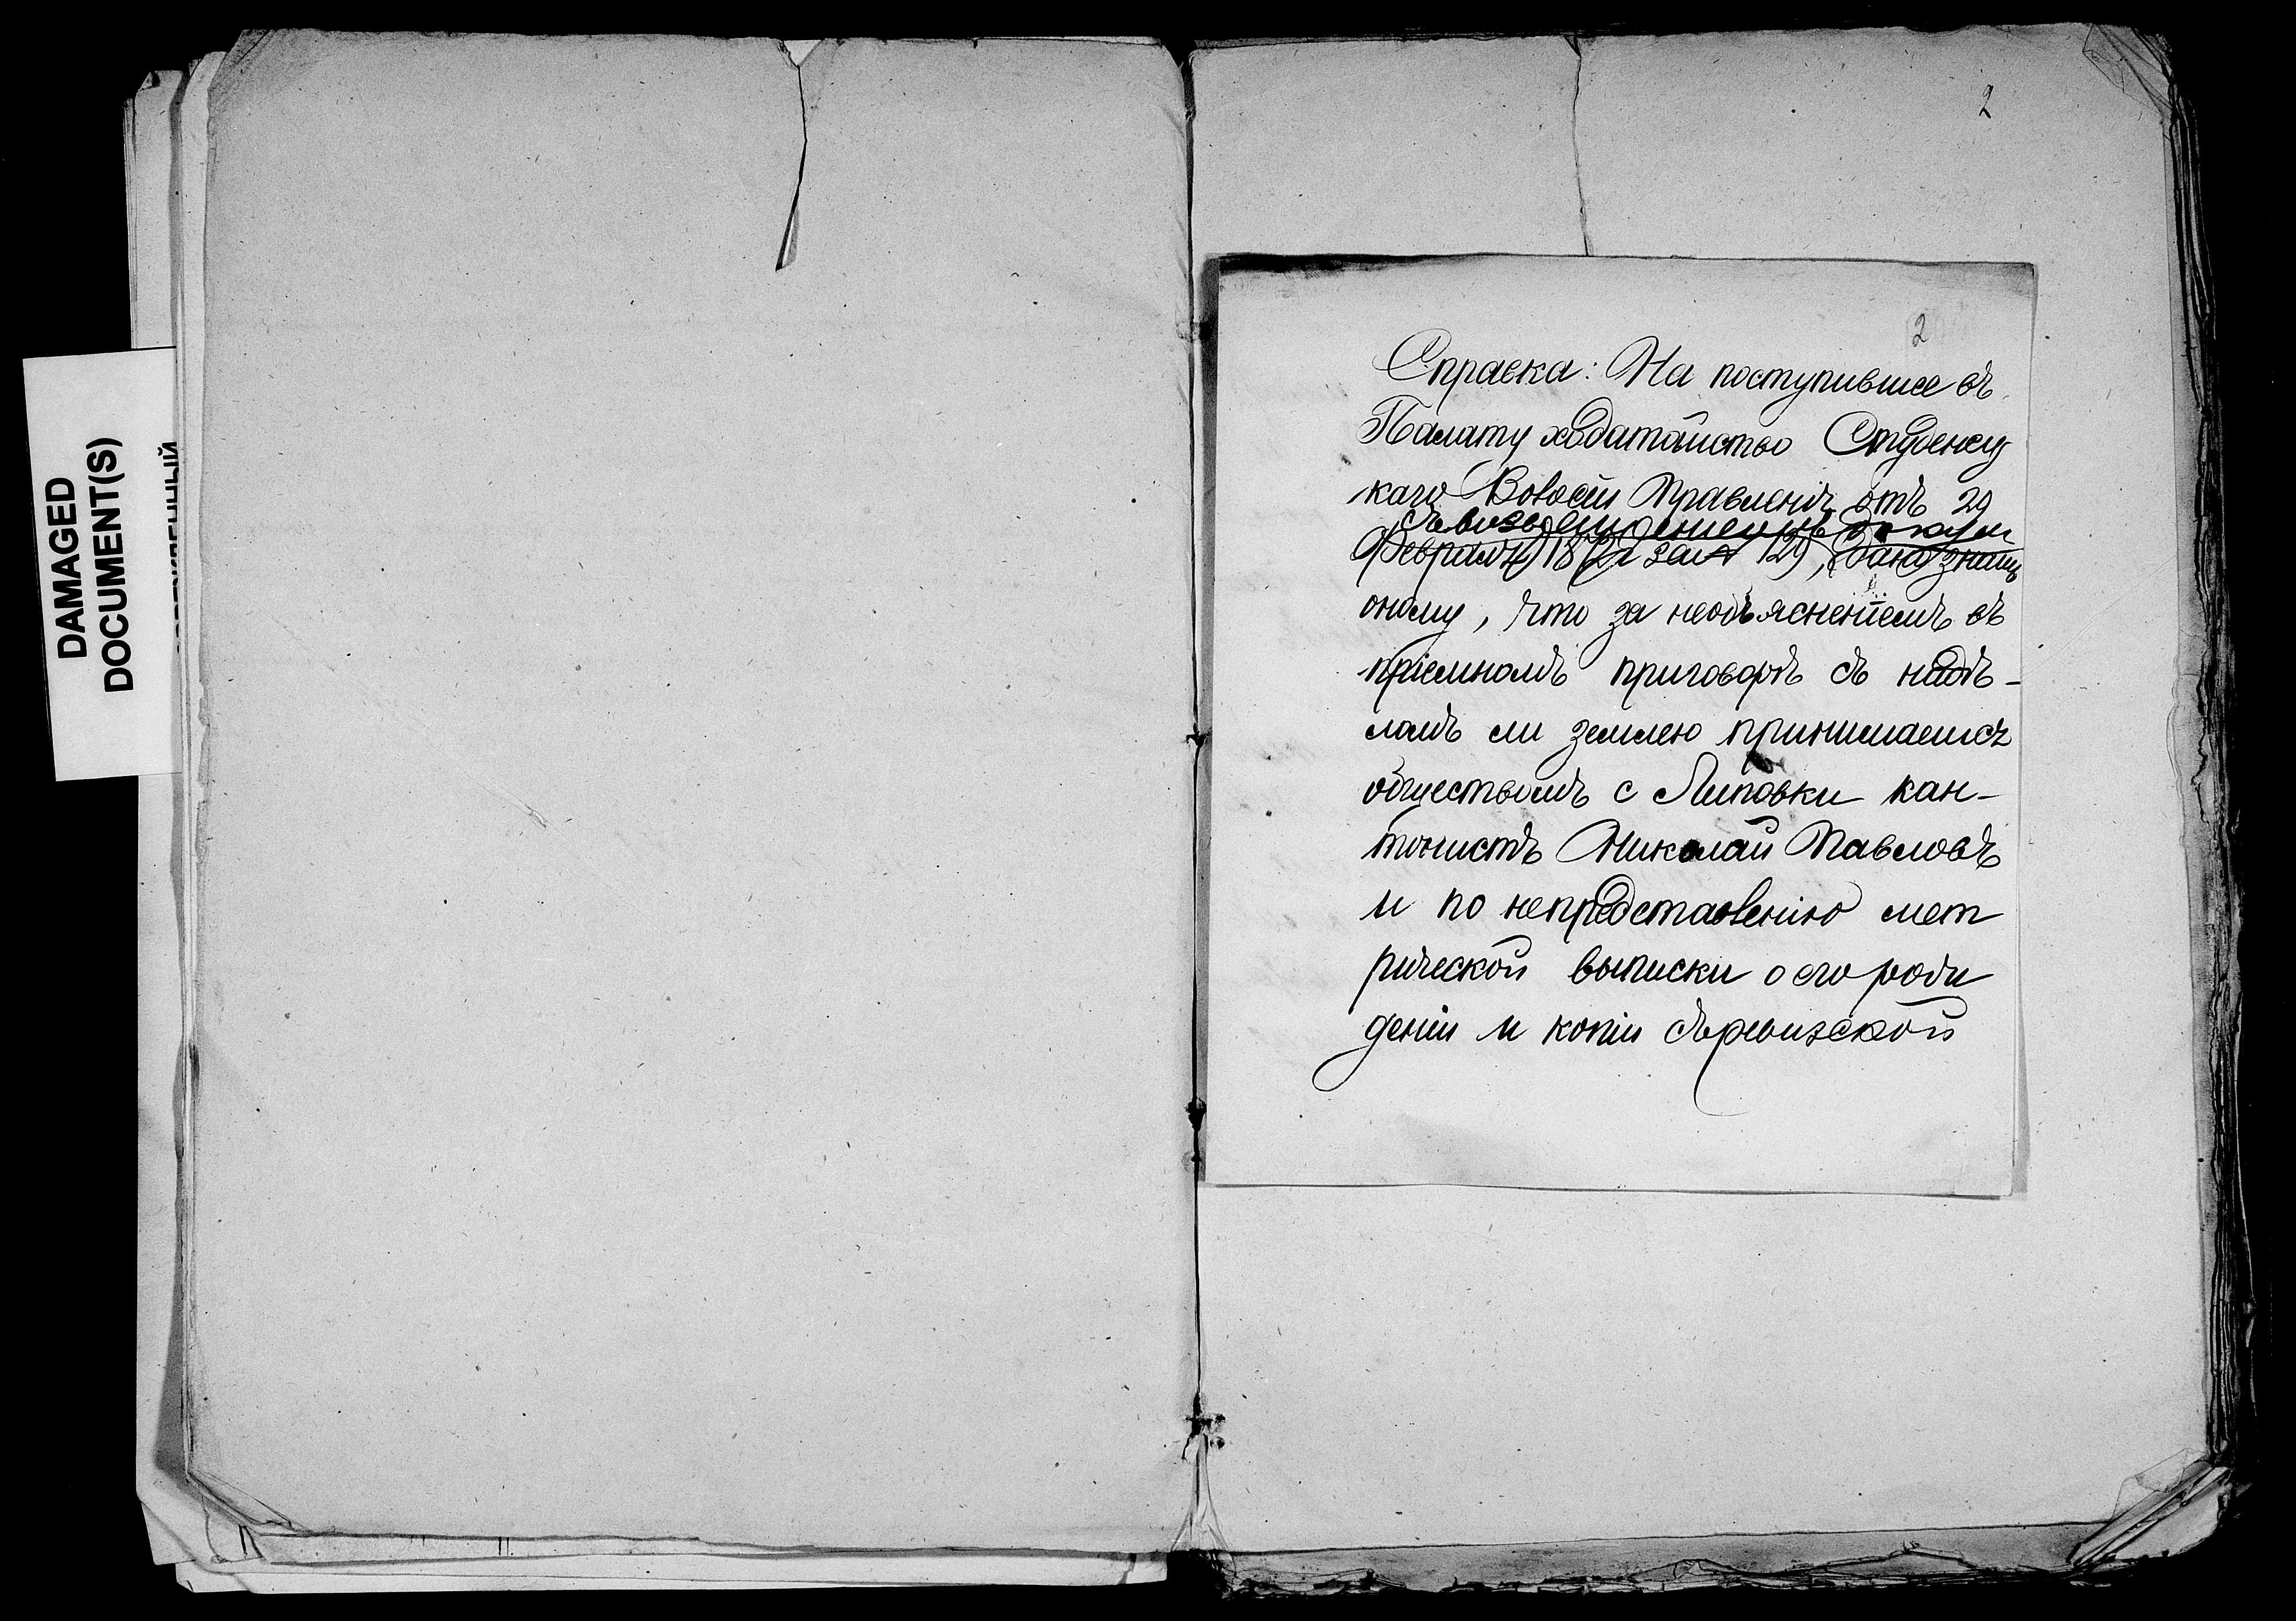 DAMAGED
DOCUMENT(S)
2
2
Справка: На поступившее въ
Палату ходатайство Студенец
каго Волостн Правленія отъ 29
съ возвращеніемъ докум
Февраля 18 за № 129, дано знать
оному, что за необъясненіемъ въ
пріемномъ приговорѣ съ надѣ-
ломъ ли землею принимается
обществомъ с Липовки кан-
тонистъ Николай Павловъ
и по непредставленію мет
рической выписки о его рож
деніи и копіи съ ревизской